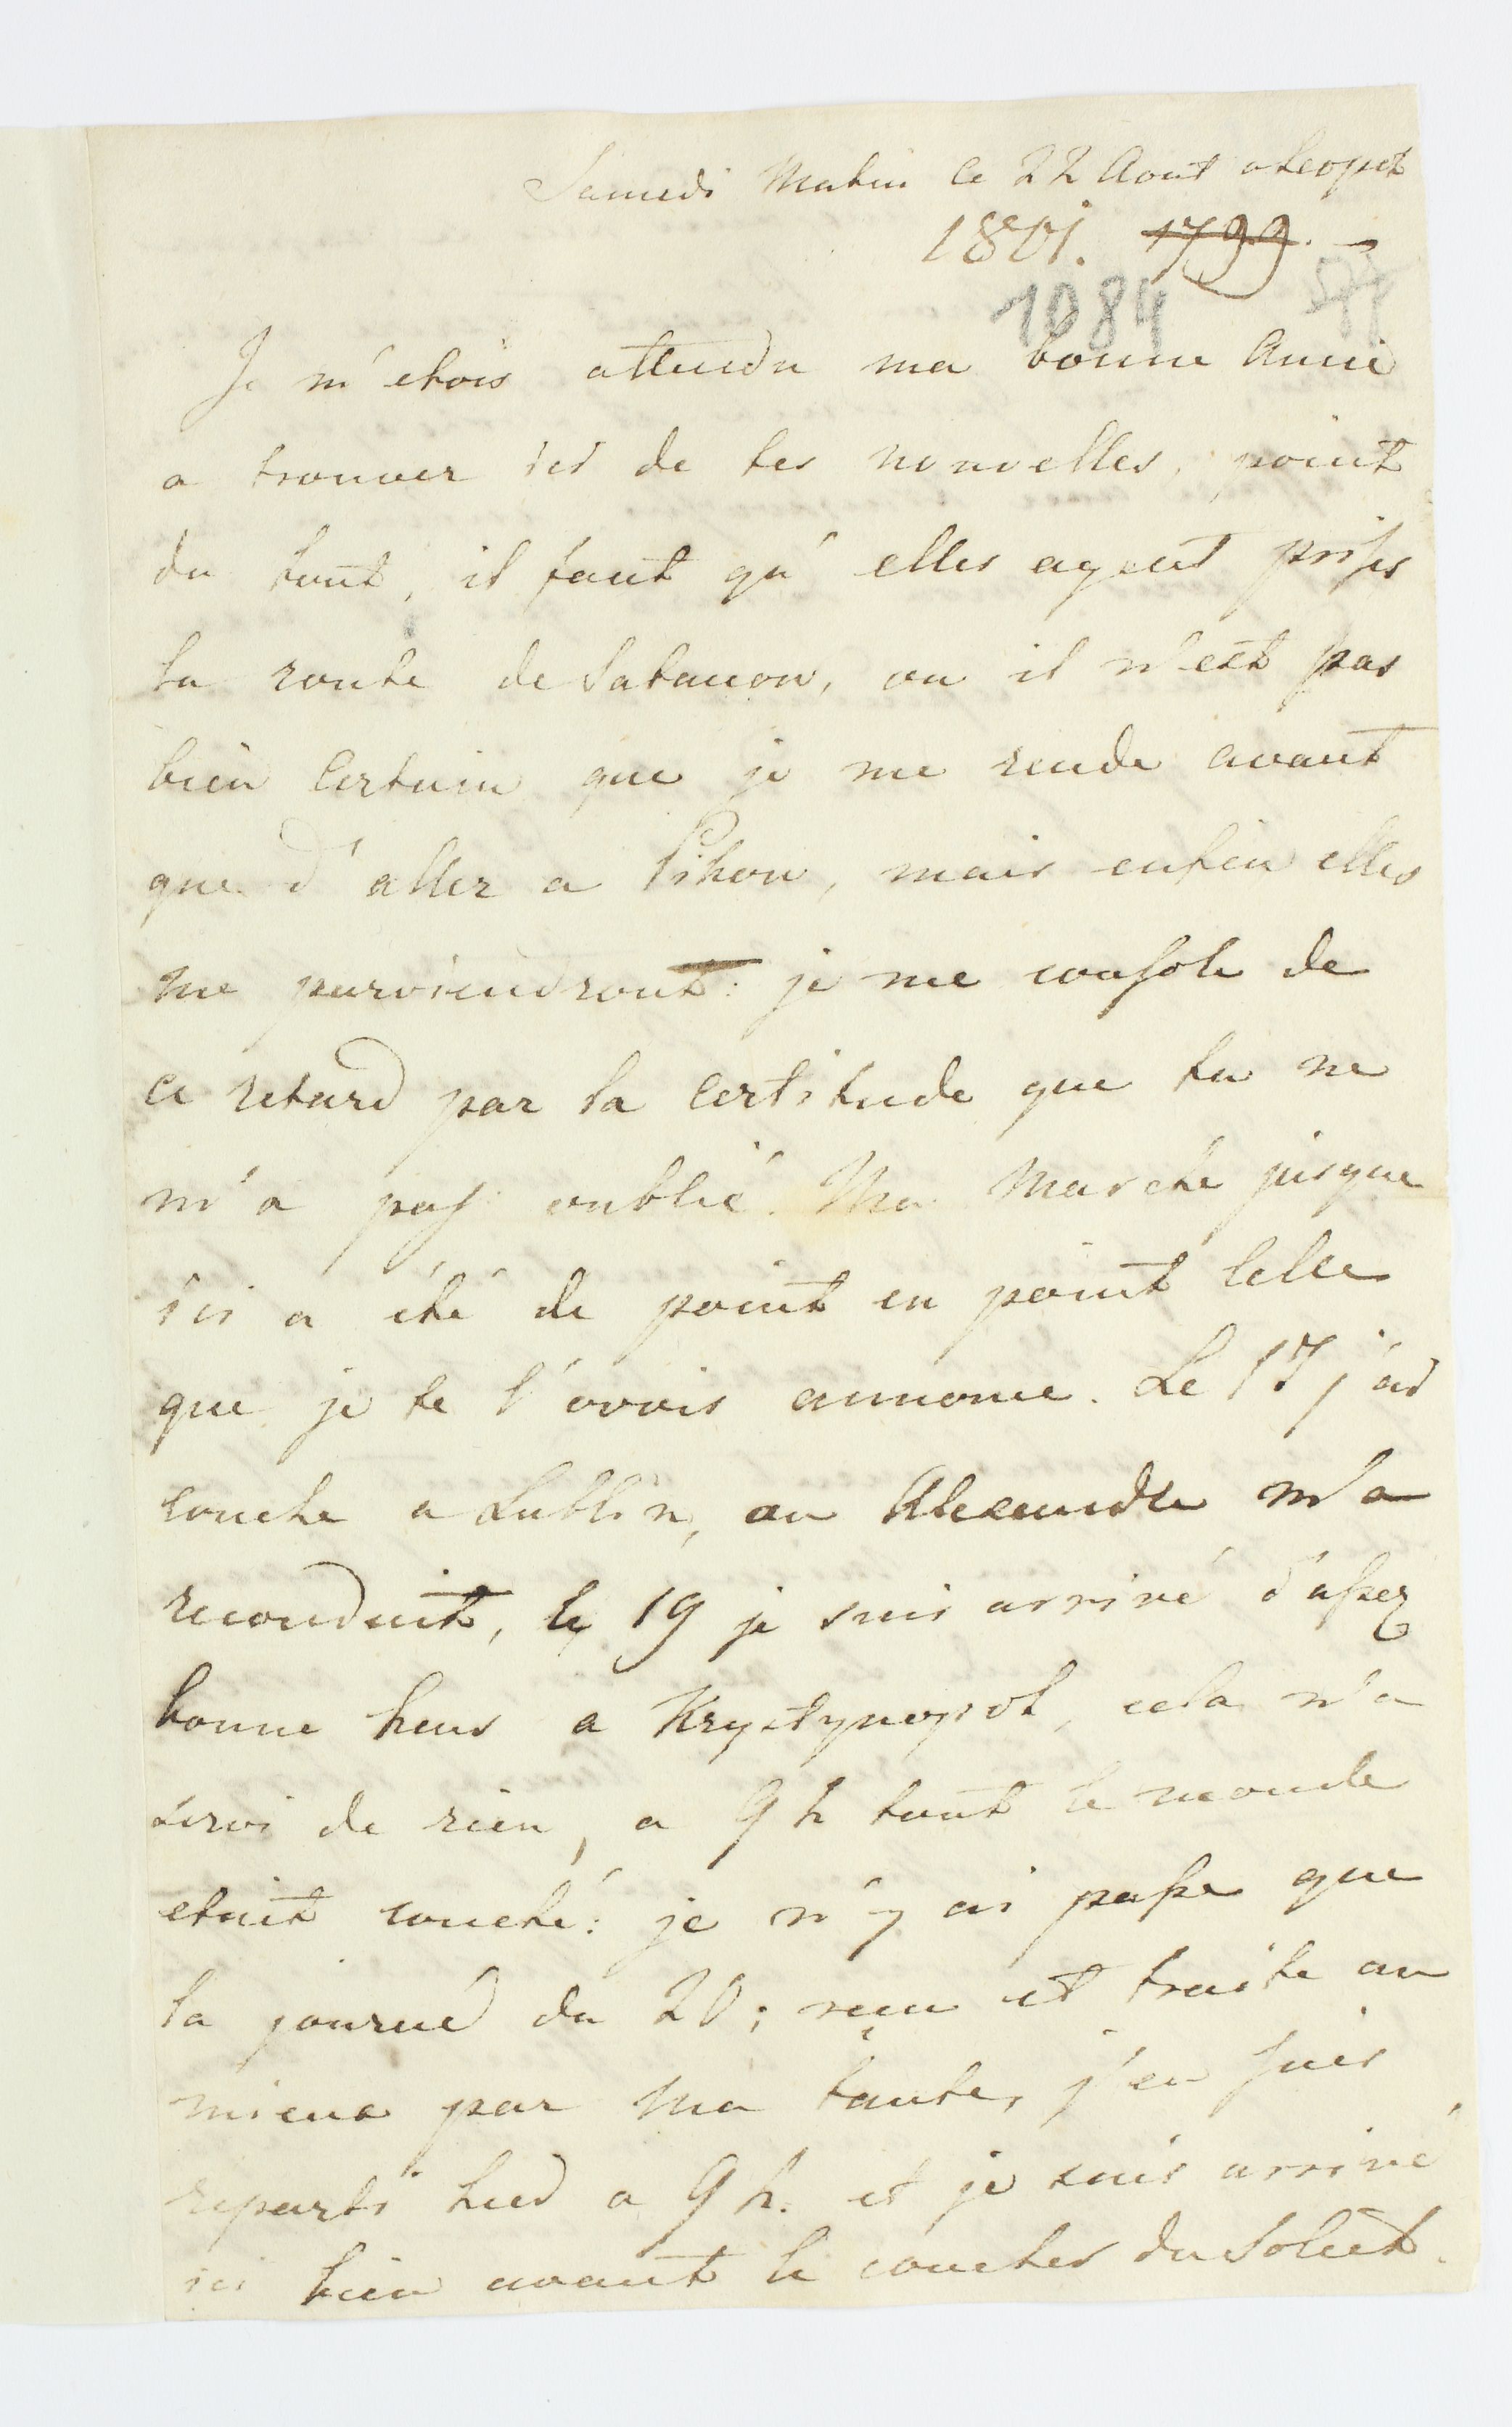 Samedi Matin ce 22 Aout a Leopol
1801. 1799. –
1084
Je m'etois attendu ma bonne Amie
a trouver ici de tes nouvelles, point
du tout, il faut qu'elles ayent prises
la route de Satanow, ou il n'est pas
bien certain que je me rende avant
que d'aller a Pikow, mais enfin elles
me parviendront: je me console de
ce retard par la certitude que tu ne
m'a pas oublié. Ma Marche jusque
ici a été de point en point telle
que je te l'avois annonce. Le 17 j'ai
couche a Lublin, ou Alexandre m'a
reconduit, le 19 je suis arrivé d'assez
bonne heur a Krystynopol, cela n'a
servi de rien, a 9 h tout le monde
etoit couché: je n'y ai passe que
la journé du 20; reçu et traite au
mieux par Ma tante, j'en suis
reparti hier a 9 h. et je suis arrivé
ici bien avant le coucher du Soleil.